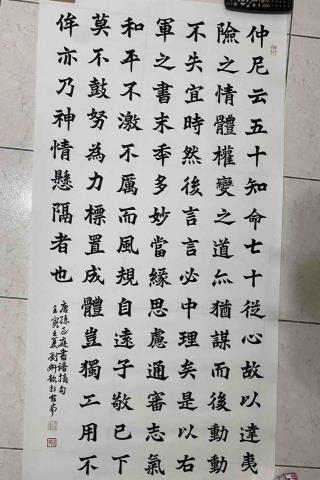 仲尼云五十知命七十從心故以達夷
險之情體權變之道亦猶謀而後動動
不失宜時然後言言必中理矣是以右
軍之書末秊多妙當緣思慮通審志氣
和平不激不厲而風規自遠子敬已下
莫不鼓努為力標置成體豈獨工用不
侔亦乃神情懸隔者也
唐孫過庭書譜摘句
壬寅夏劉於台南